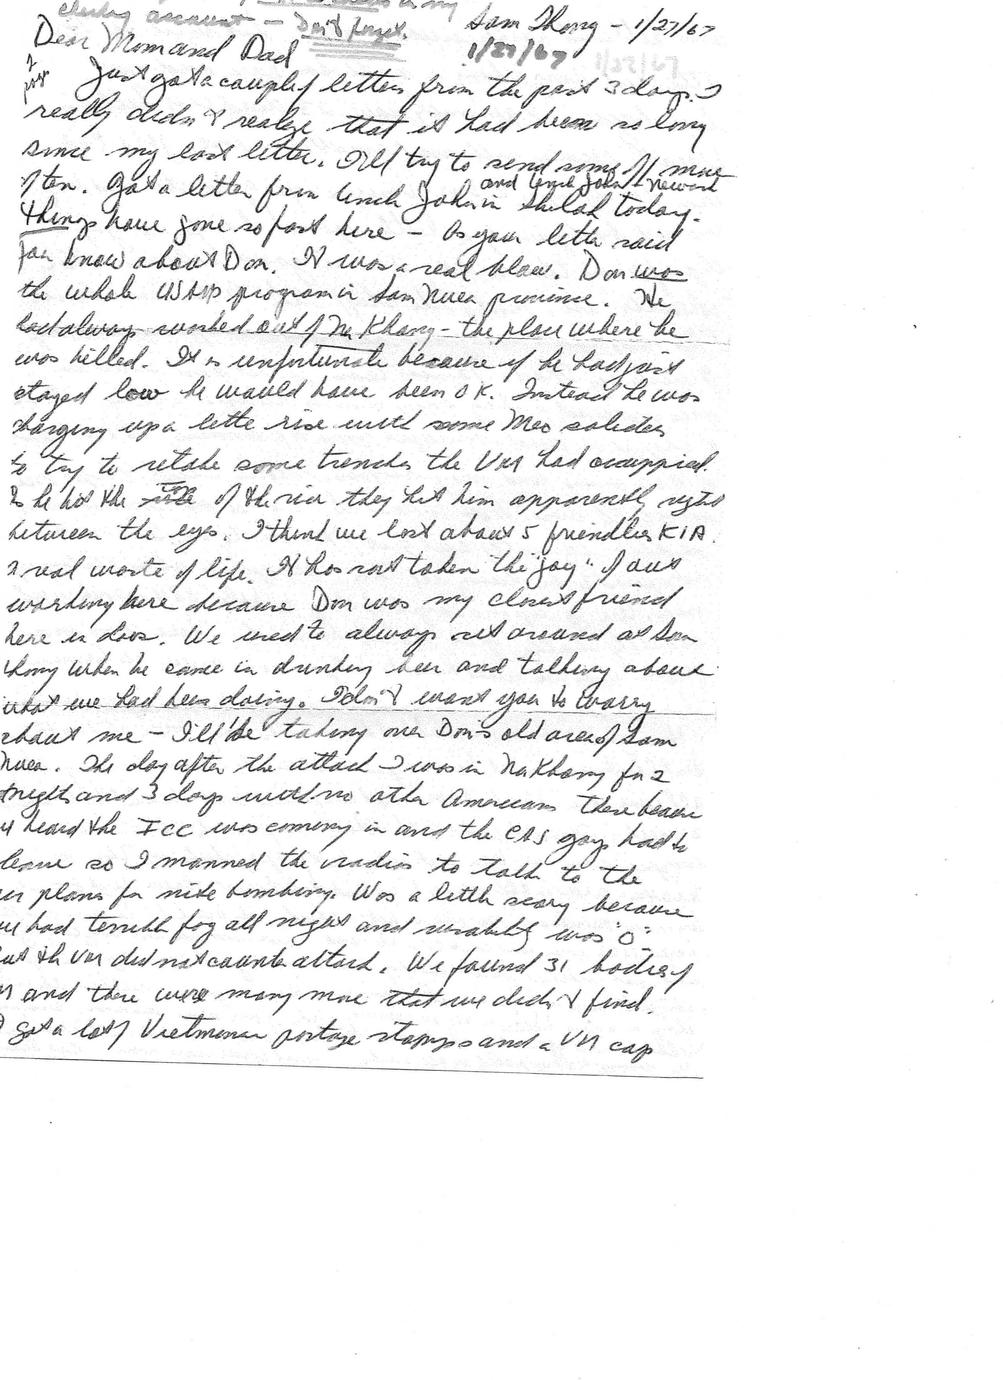 in my
checking account – Don't forget.
Sam Thong – 1/27/67
1/27/67 1/27/67
Dear Mom and Dad
Just got a couple of letters from the past 3 days. I
really didn't realize that it had been so long
since my last letter. I'll try to send some off more
often. Got a letter from Uncle John in today.
and Uncle John – Newark
things have gone so fast here – As your letter said
you know about Don. It was a real blow. Don was
the whole USAID program in Sam Nuea province. He
had always worked out of Na Khang – the place where he
was killed. It is unfortunate because if he had just
stayed low he would have been OK. Instead he was
charging up a little rise with some Meo soliders
to try to retake some trenches the VM had occuppied.
As he hit the top of the rise they hit him apparently right
between the eyes. I think we lost about 5 friendlies KIA.
A real waste of life. It has sort taken the "joy" of out
working here because Don was my closest friend
here in Laos. We used to always sit around at Sam
Thong when he came in drinking beer and talking about
what we had been doing. I don't want you to worry
about me – I'll be taking over Don's old area of Sam
Nuea. The day after the attack I was in Na Khang for 2
nights and 3 days with no other Americans there because
we heard the ICC was coming in and the CAS guys had to
leave so I manned the radios to talk to the
air plans for nite bombing. Was a little scary because
we had terrible fog all night and visability was "0".
but the VM did not counter attack. We found 31 bodies of
VM and there were many more that we didn't find.
I got a lot of Vietmenese postage stamps and a VM cap